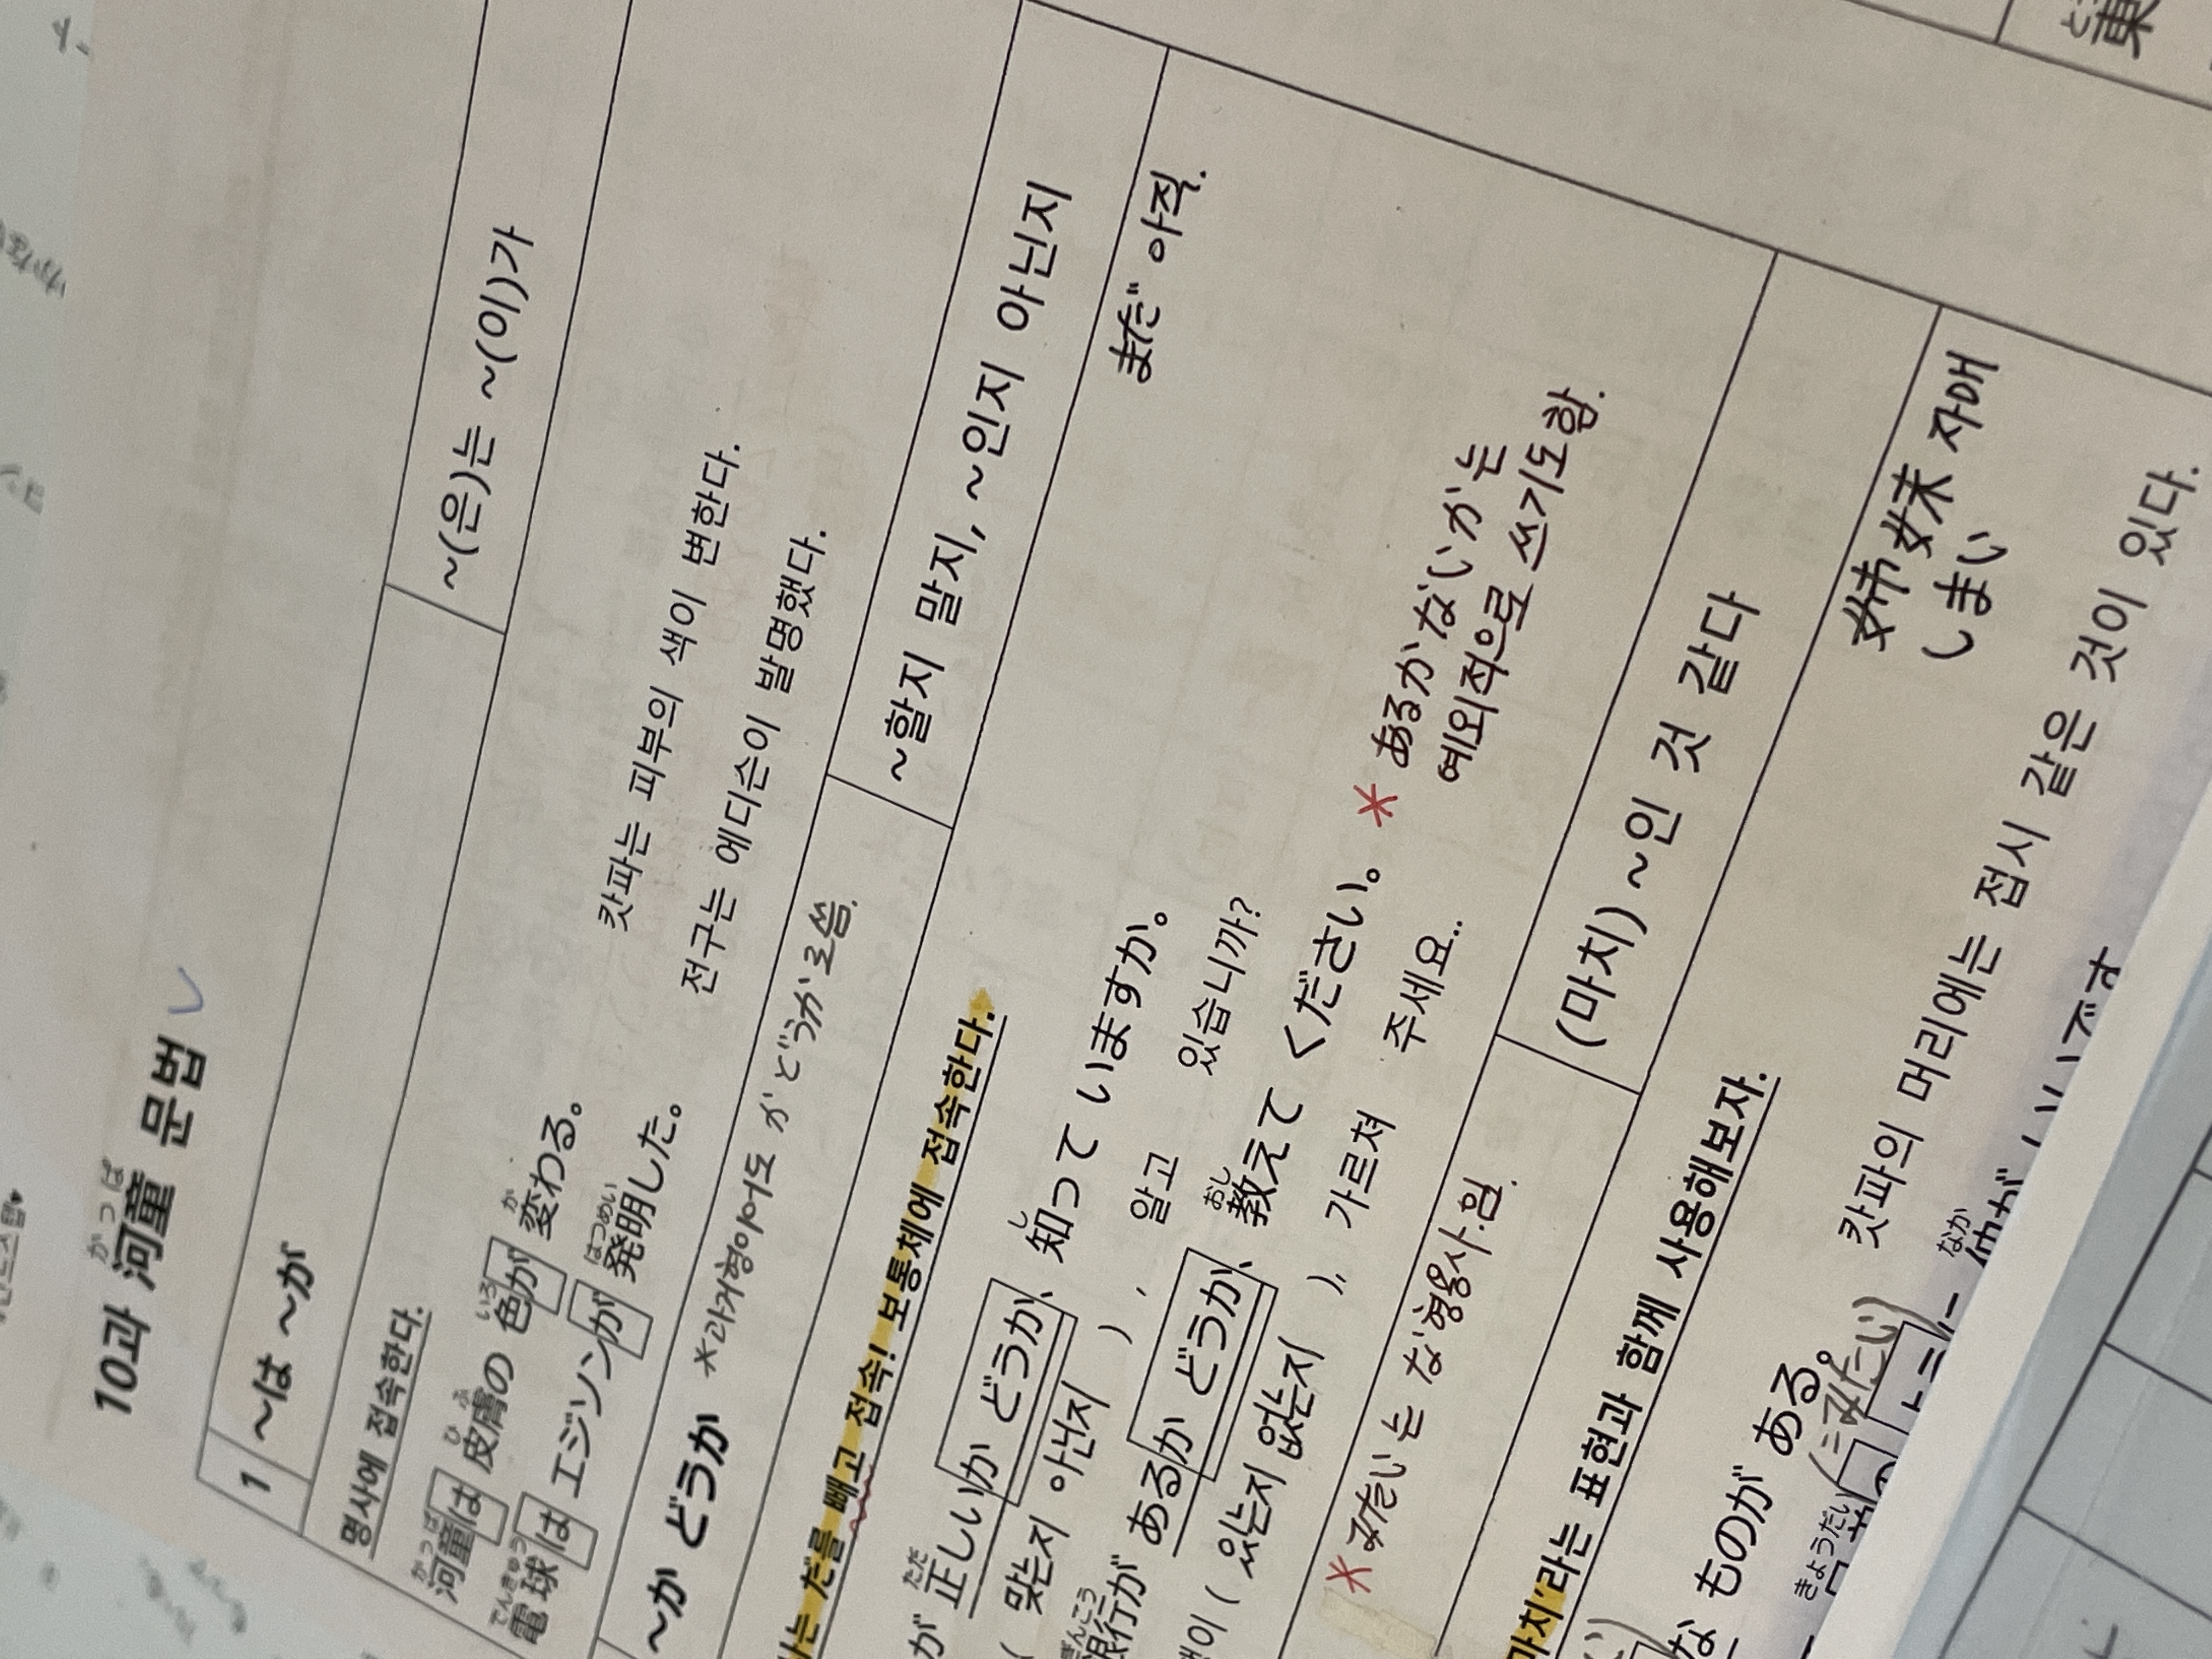 10과 河童 문법
かっぱ
1 ~は ~が ~(은)는 ~(이)가
명사에 접속한다.
河童は 皮膚の 色が 変わる。 캇파는 피부의 색이 변한다.
かっぱ ひふ いろ か
電球は エジソンが 発明した。 전구는 에디슨이 발명했다.
でんきゅう はつめい
~か どうか *과거형이어도 かどうか로씀. ~할지 말지, ~인지 아닌지
는 だ를 빼고 접속! 보통체에 접속한다.
まだ 아직.
が 正しいか どうか、 知って いますか。
ただ し
( 맞는지 아닌지 ), 알고 있습니까?
銀行が あるか どうか、 教えて ください。
ぎんこう おし
( 있는지 없는지 ), 가르쳐 주세요..
* あるかないか는
예외적으로 쓰기도 함.
* みたい는 な형용사임.
(마치) ~인 것 같다
마치'라는 표현과 함께 사용해보자.
姉妹 자매
しまい
な ものが ある。 캇파의 머리에는 접시 같은 것이 있다.
(=みたい)
きょうだい なか